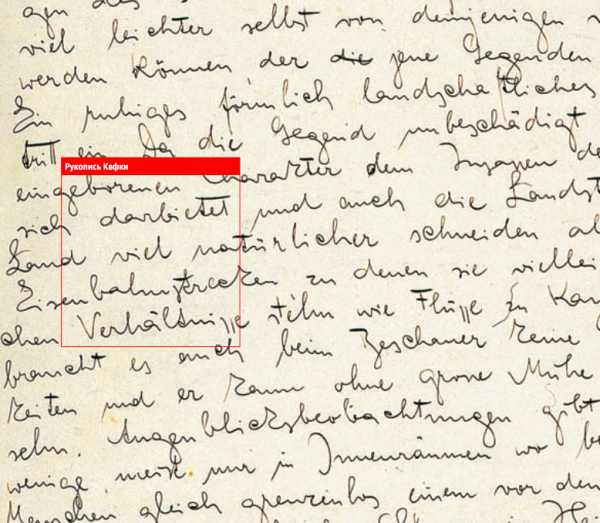 gen des
viel leichter selbst von demjenigen
werden können, der die jene Gegenden
Ein ruhiges förmlich landschaftliches
tritt ein Da die Gegend unbeschädigt
Рукопись Кафки
eingeborenen Charakter dem Insassen
sich darbietet und auch die
Land viel natürlicher schneiden
Eisenbahnstrecken zu denen sie
chen Verhältnisse stehn wie Flüsse zu
braucht es auch beim Beschauer keine
Zeiten und er kann ohne grosse Mühe
sehn. Augenblicksbeobachtungen gibt
wenige, meist nur in Innenräumen wo
Menschen gleich grenzenlos einem vor den